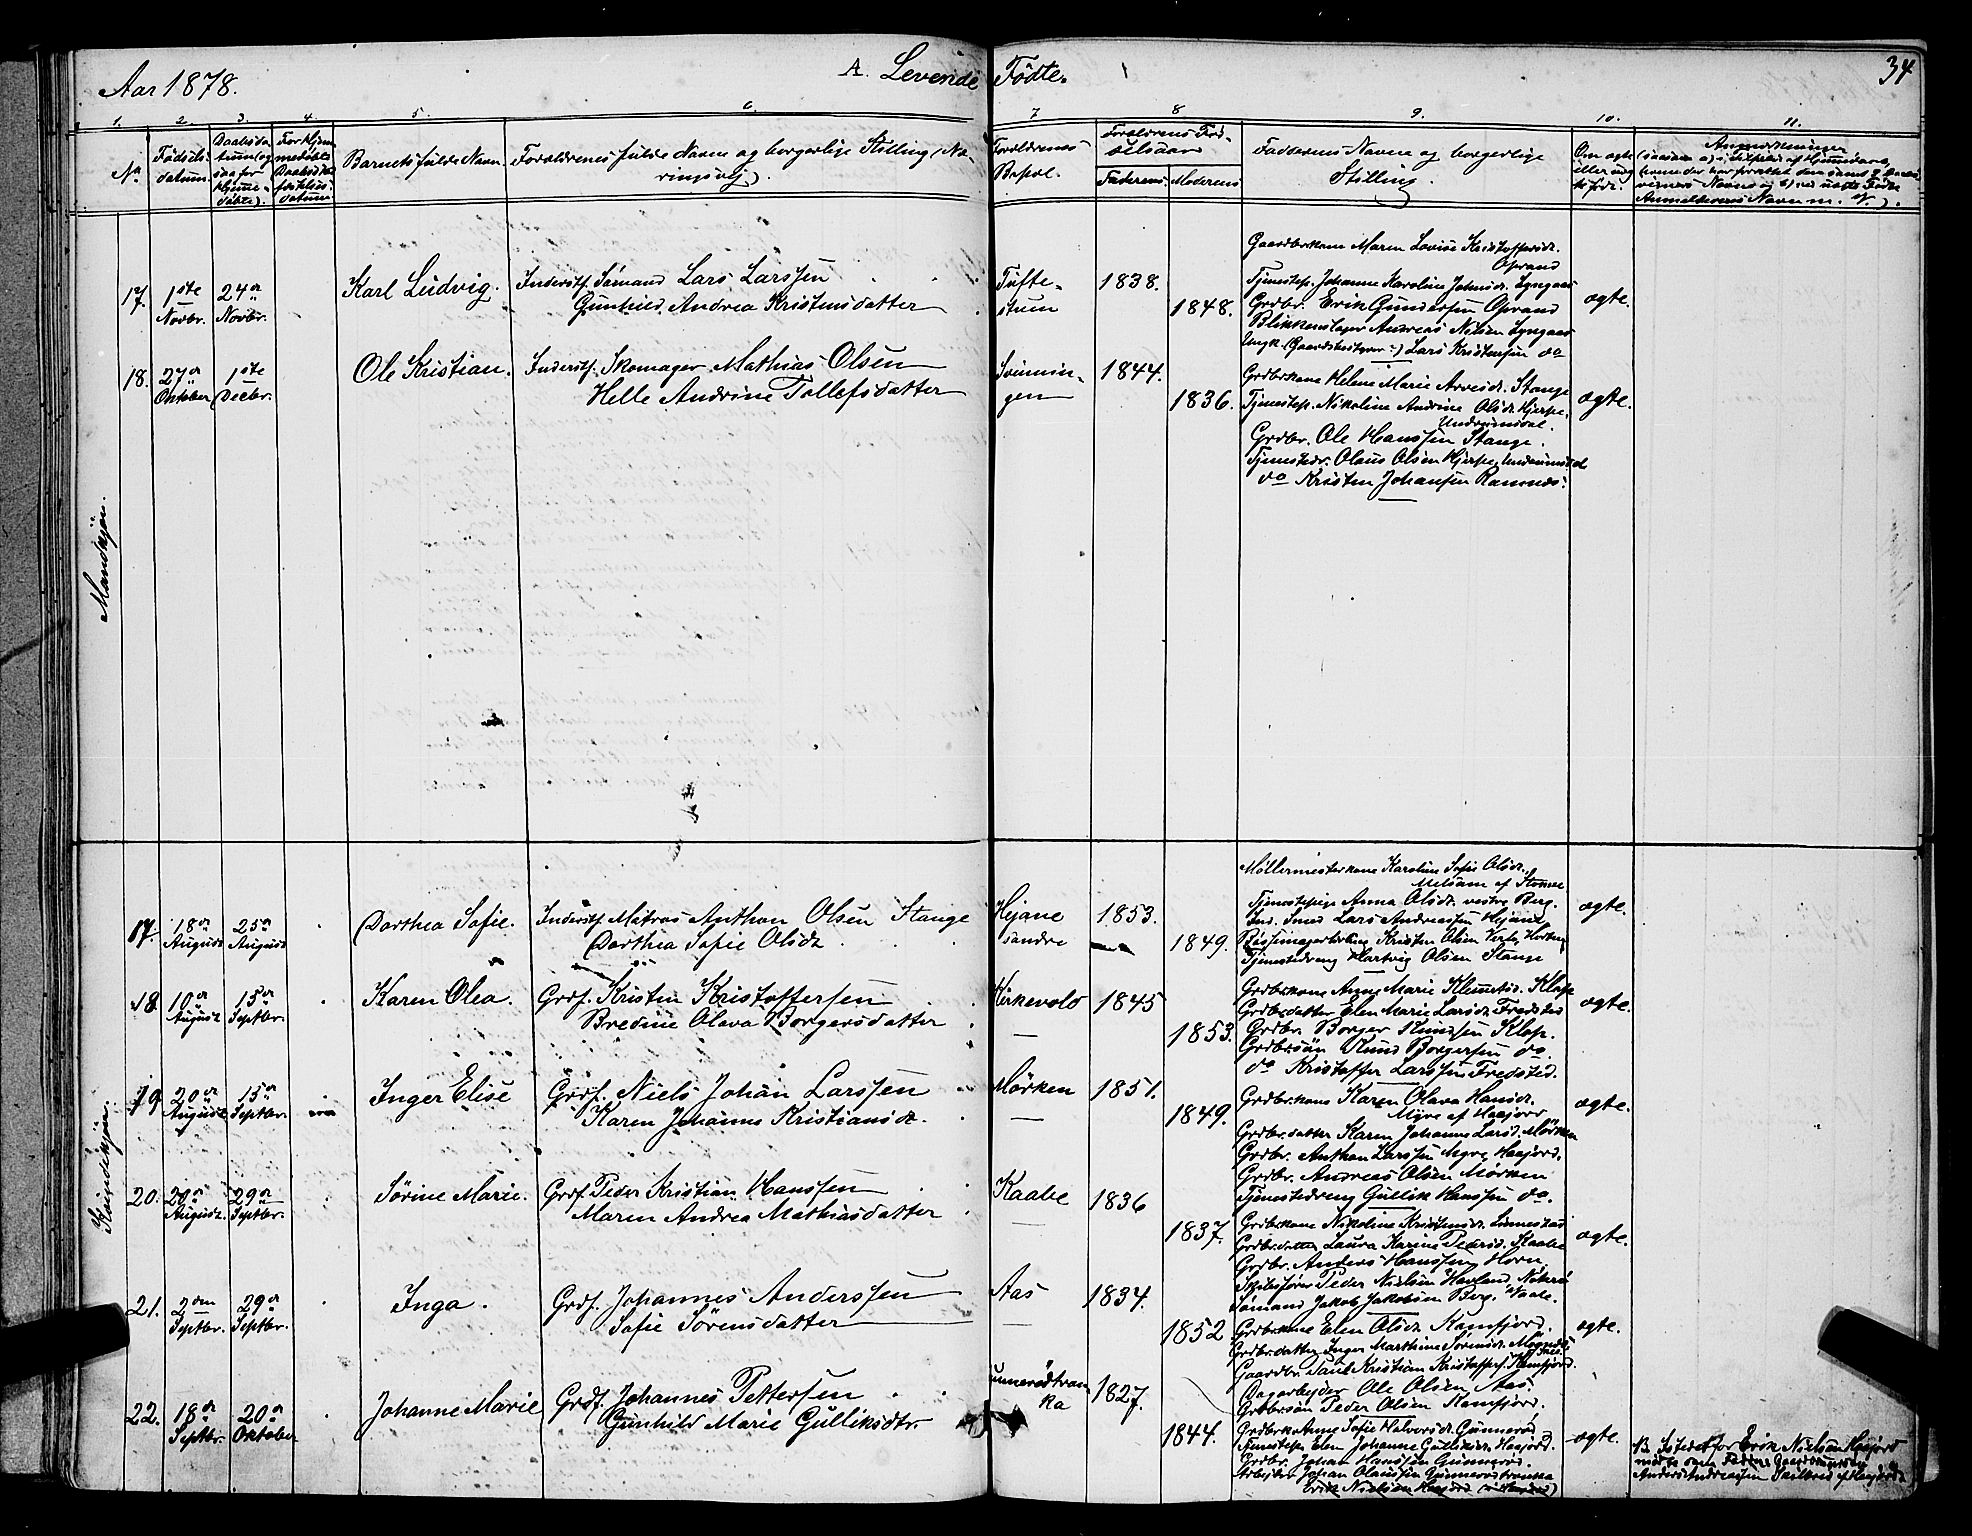 Aar 1878.
A. Levende Fødte.
34
1. 2. 3. 4. 5. 6. 7 8 9. 10. 11.
No
Fødsels-
datum.
Barnets fulde Navn
Forældrenes fulde Navne og borgerlige Stilling (Næ-
ringsvej).
Forældrenes
Bopæl.
Forældrenes Fød-
selsaar
Faderens Moderens
Faddernes Navne og borgerlige
Stilling.
Om ægte
eller uæg-
te født.
Anmærkninger
Mandkjøn.
17. 1ste Novbr. 24de Novbr.
Karl Ludvig.
Inderstf. Sømand Lars Larssen
Gunhild Andrea Kristensdatter
Tufte-
stuen
1838.
1848.
Gaardbr.kone Maren Lovise Kristoffersd.
Oprand
Tjenestep. Johanne Karoline Johnsd.
Grdbr. Erik Gundersen Oprand
Blikkenslager Andreas Nilsen
Lars Kristensen do
ægte.
18. 27de Oktober 1ste Decbr.
Ole Kristian.
Inderstf. Skomager Mathias Olsen
Helle Andrine Tollefsdatter
Svinnin-
gen
1844.
1836.
Grdbr.kone Helene Marie Arvesd. Stange
Tjenestep. Nikoline Andrine Olsd. Hjerpe,
Undrumsdal.
Grdbr. Ole Hanssen Stange.
Tjenestedr. Olaus Olsen Hjerpe, Undrumsdal
do Kristen Johansen Ramnæs.
ægte.
Kvindekjøn.
17. 18de August 25de August
Dorthea Sofie.
Inderstf. Matros Anthon Olsen Stange
Dorthea Sofie Olsdr.
Hejane
søndre
1853.
1849.
Møllermesterkone Karoline Sofie Olsdr.
Melsom af Stokke
Tjenestepige Anna Olsdr. vestre Berg.
Ind. Smed Lars Andreassen Hejane
Kristen Olsen
Tjenestedreng Hartvig Olsen Stange
ægte.
18. 10de August 15de Septbr.
Karen Olea.
Grdf. Kristen Kristoffersen
Bredine Olava Borgersdatter
Kirkevold
1845
1853.
Grdbr.kone Anne Marie Klemetsd. Klop
Grdbr.datter Elen Marie Larsdr. Fredsted
Grdbr. Borger Knudsen Klop.
Grdbr.søn Knud Borgersen do.
do Kristoffer Larssen Fredsted.
ægte.
19 20de August 15de Septbr.
Inger Elise
Grdf. Niels Johan Larssen
Karen Johanne Kristiansdr.
Mørken
1851.
1849.
Grdbr.kone Karen Olava Hansdr.
Myre af Haajord
Grdbr.datter Karen Johanne Larsd. Mørken
Grdbr. Anthon Larssen Myre Haajord.
Grdbr. Andreas Olsen Mørken
Tjenestedreng Gullik Hanssen do.
ægte.
20. 20de August 29de Septbr.
Sørine Marie.
Grdf. Peder Kristian Hanssen
Maren Andrea Mathiasdatter
Kaabe
1836
1837.
Grdbr.kone Nikoline Kristensdr. Linnestad
Grdbr.datter Laura Karine Pedersd. Kaabe
Grdbr. Anders Hanssen Horn,
Skibsfører Peder Nielsen Havland, Nøterø
Sømand Jakob Jakobsen Berg, Vaale.
ægte.
21. 2den Septbr. 29de Septbr.
Inga.
Grdf. Johannes Anderssen
Sofie Sørensdatter
Aas
1834.
1852
Grdbr.kone Elen Olsdr. Kamfjord.
Grdbr.datter Inger Marthine Sørensd.
Gaardbr. Paul Kristian Kristoffers. Kamfjord.
Dagarbejder Ole Olsen Aas.
Grdbr.søn Peder Olsen Kamfjord.
ægte.
22. 18de Septbr. 20de Oktober
Johanne Marie
Grdf. Johannes Pettersen
Gunhild Marie Gulliksdtr.
Gunnerødtran-
ka
1827.
1844.
Grdbr.k. Anne Sofie Halvorsdr. Gunnerød
Tjenestep. Elen Johanne Gulliksdr. Haajord.
Grdbr. Johan Hanssen Gunnerød.
Arbejder Johan Olaussen Gunnerødtranka
Erik Nielsen Haajord
ægte.
B. Istedetfor Erik Nielsen Haajord
mødte som Fadder Gaardmanden
Anders Andreassen